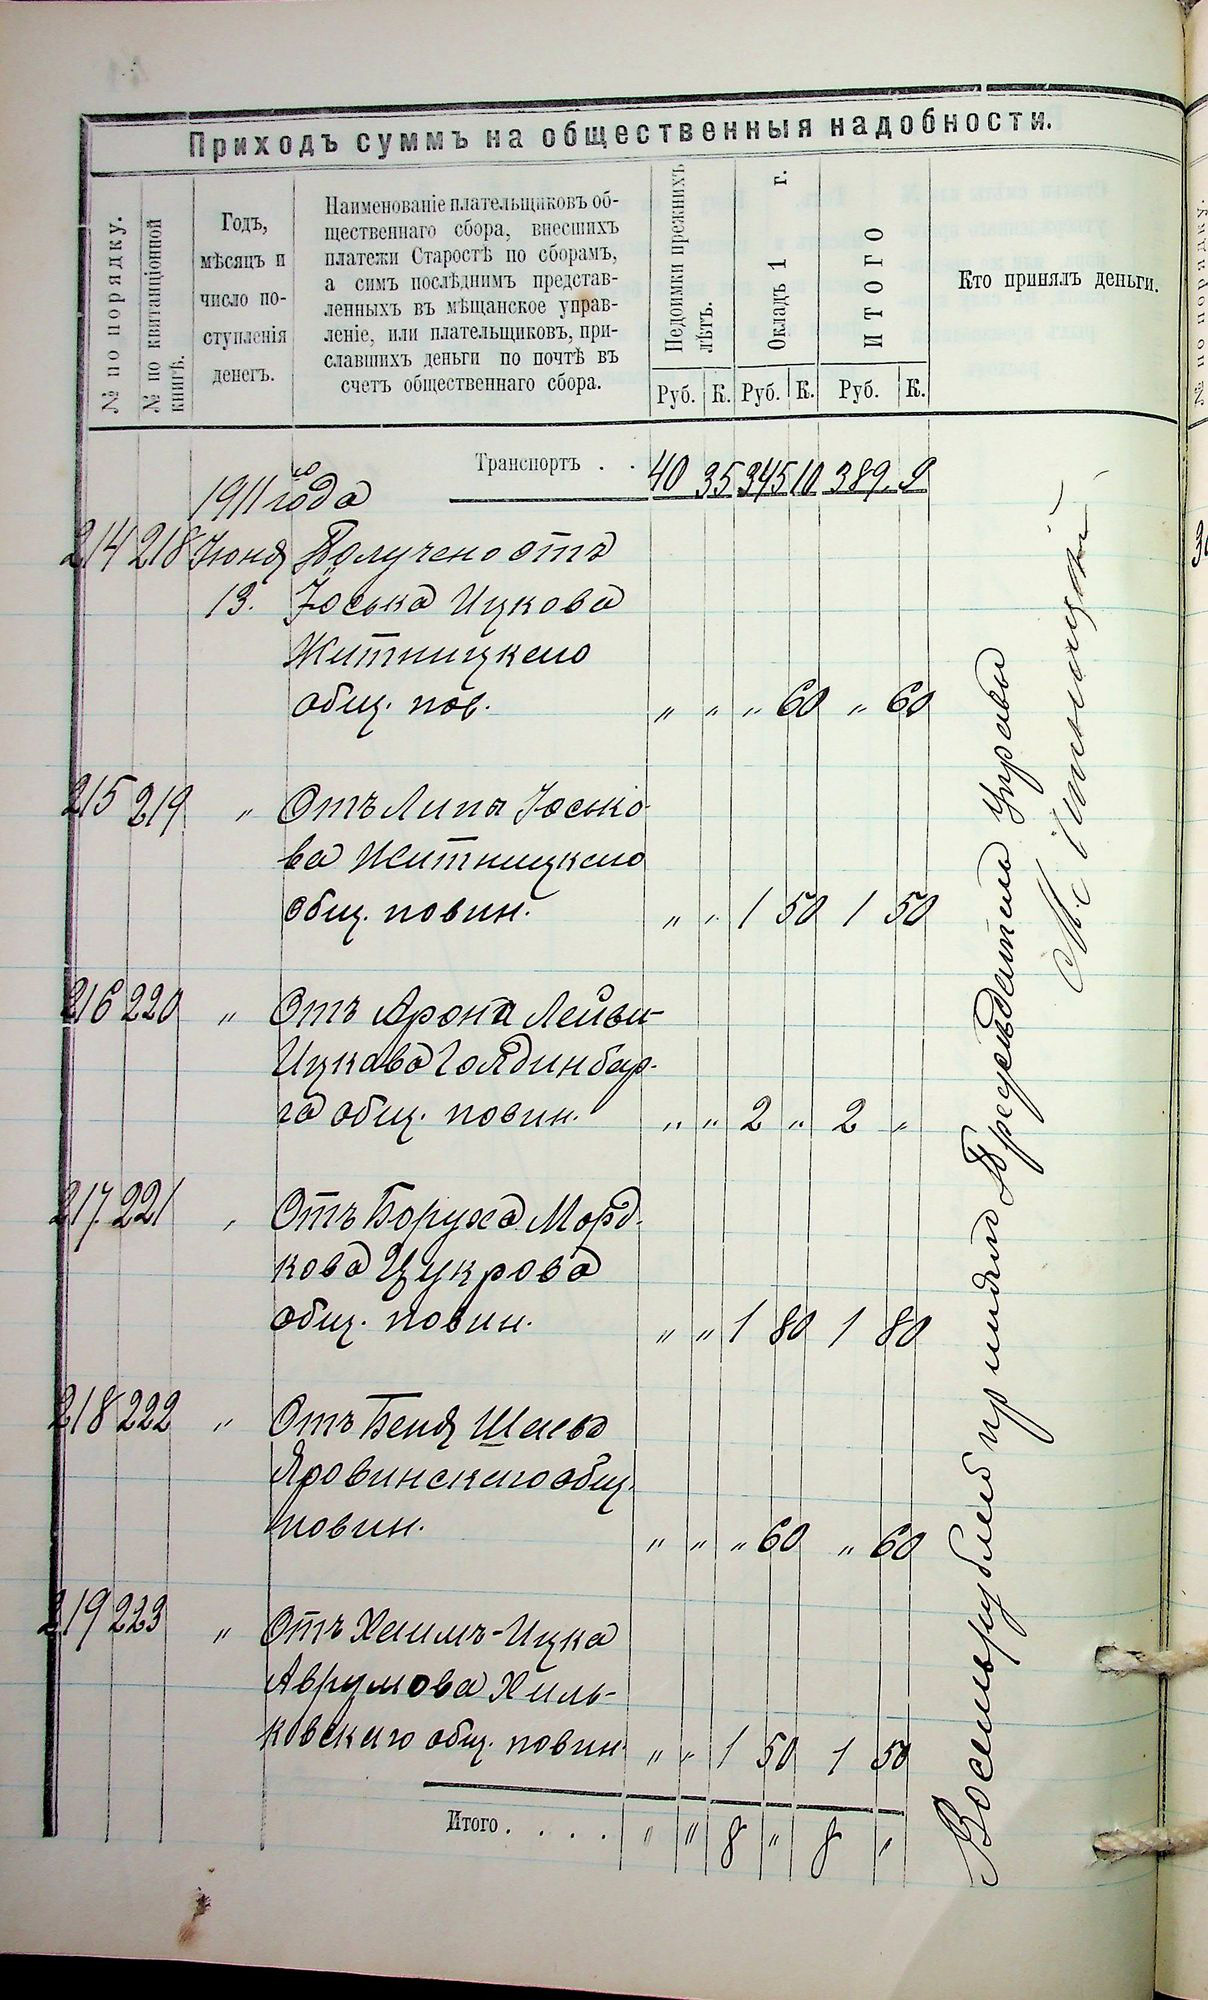 Приходъ суммъ на общественныя надобности.
№ по порядку.
№ по квитанціонной
книгѣ.
Годъ,
мѣсяцъ и
число по-
ступленія
денегъ.
Наименованіе плательщиковъ об-
щественнаго сбора, внесшихъ
платежи Старостѣ по сборамъ,
а симъ послѣднимъ представ-
ленныхъ въ мѣщанское управ-
леніе, или плательщиковъ, при-
славшихъ деньги по почтѣ въ
счетъ общественнаго сбора.
Недоимки прежнихъ
лѣтъ.
Окладъ 1 г.
ИТОГО
Кто принялъ деньги.
Руб. К. Руб. К. Руб. К.
Транспортъ . . 40 35 345 10 389 9
1911 года
214 218 Іюня Получено отъ
13. Іоська Ицкова
Житницкаго
общ. пов. " " " 60 " 60
215 219 " Отъ Липы Іосько-
ва Житницкаго
общ. повин. " " 1 50 1 50
216 220 " Отъ Арона Лейви-
Ицкова Голдинбер-
га общ. повин. " " 2 " 2 "
217. 221 " Отъ Боруха Морд-
кова Цукрова
общ. повин. " " 1 80 1 80
218 222 " Отъ Беня Шаева
Яровинскаго общ.
повин. " " " 60 " 60
219 223 " Отъ Хаимъ-Ицка
Аврумова Хиль-
ковскаго общ. повин. " " 1 50 1 50
Итого . . . . " " 8 " 8 "
Восемь рублей принялъ Предсѣдатель Управы